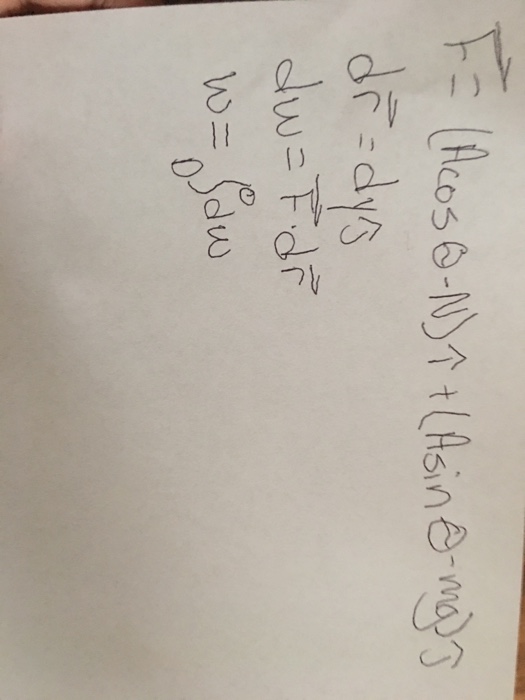 F⃗ = (Acos θ - N)î + (Asin θ - mg)ĵ
dr⃗ = dyĵ
dw = F⃗ · dr⃗
w = ₀∫⁰ dw